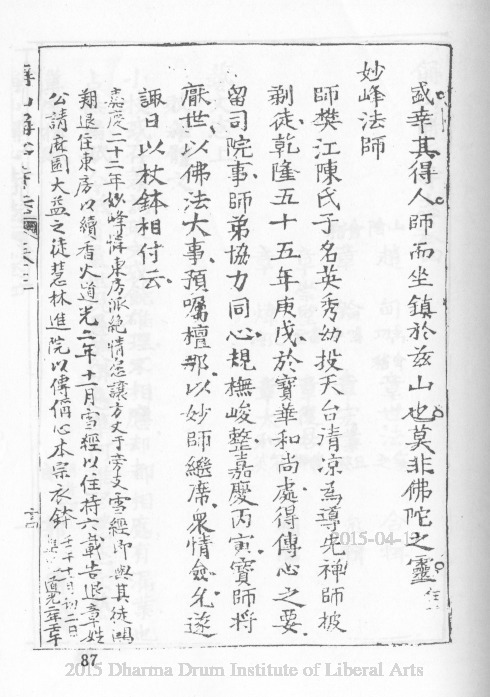 盛幸其得人師而坐鎮於兹山也莫非佛陀之靈
妙峰法師
師樊江陳氏子名英秀幼投天台清凉為導先禅師披
剃徒乾隆五十五年庚戌於寶華和尚處得傳心之要
留司院事師弟協力同心規橅峻整嘉慶丙寅寶師將
厭世以佛法大事預囑檀那以妙師繼席衆情僉允遂
諏日以杖鉢相付云
嘉慶二十二年妙峰將東房派絶情愿讓方丈于旁支雪經即與其徒鴻
翔退住東房以續香火道光二年十一月雪經以住持六載告退章姓
公請庥園大益之徒慧林進院以傳偁心本宗衣鉢
87
2015-04-1
2015 Dharma Drum Institute of Liberal Arts